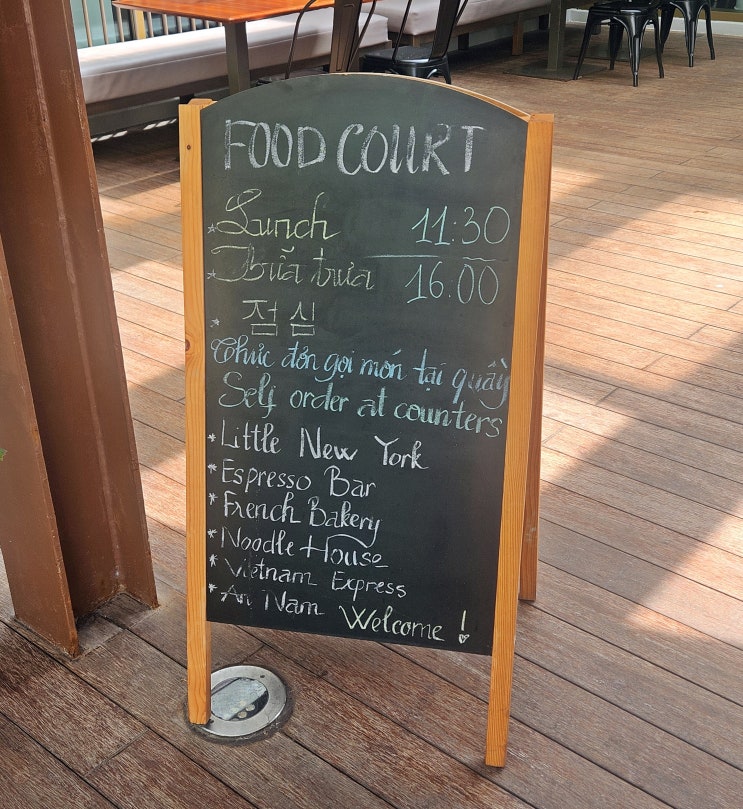 FOOD COURT
* Lunch 11:30
* Bữa trưa 16.00
* 점심
Thực đơn gọi món tại quầy
Self order at counters
* Little New York
* Espresso Bar
* French Bakery
* Noodle House
* Vietnam Express
* An Nam Welcome!